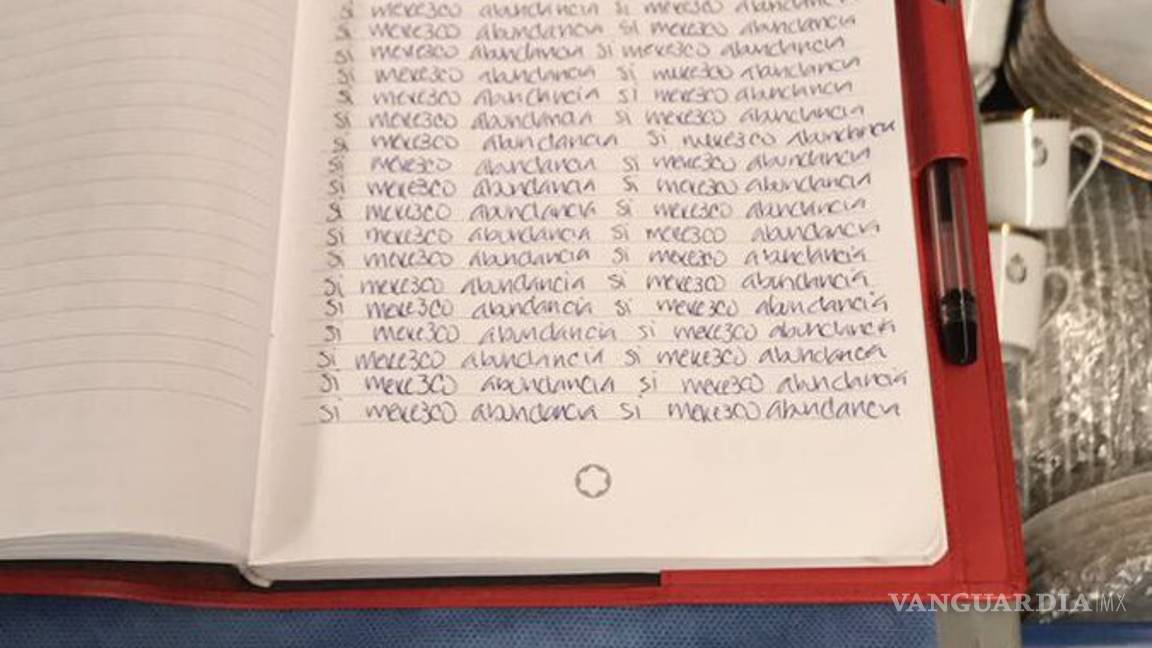 si merezco abundancia si merezco abundancia
si merezco abundancia si merezco abundancia
si merezco abundancia si merezco abundancia
si merezco abundancia si merezco abundancia
si merezco abundancia si merezco abundancia
si merezco abundancia si merezco abundancia
si merezco abundancia si merezco abundancia
si merezco abundancia si merezco abundancia
si merezco abundancia si merezco abundancia
si merezco abundancia si merezco abundancia
si merezco abundancia si merezco abundancia
si merezco abundancia si merezco abundancia
si merezco abundancia si merezco abundancia
si merezco abundancia si merezco abundancia
si merezco abundancia si merezco abundancia
si merezco abundancia si merezco abundancia
si merezco abundancia si merezco abundancia
si merezco abundancia si merezco abundancia
VANGUARDIA|MX